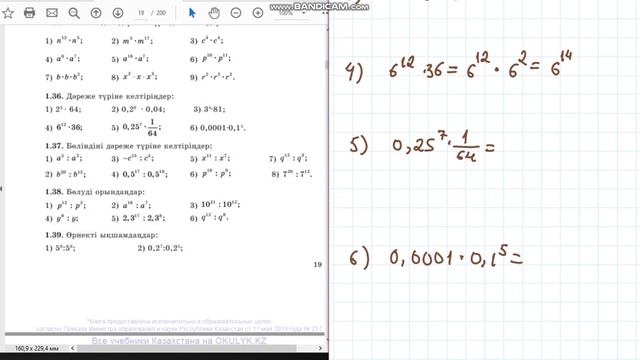 WWW.BANDICAM.COM
19 / 200
100%
1) n¹² · n⁵; 2) m⁵ · m¹⁷; 3) c³ · c⁴;
4) a⁶ · a⁷; 5) a¹⁶ · a⁷; 6) p¹⁰ · p¹¹;
7) b · b · b²; 8) x² · x · x³; 9) r² · r² · r².
1.36. Дәреже түріне келтіріңдер:
1) 2⁵ · 64; 2) 0,2⁶ · 0,04; 3) 3⁶·81;
4) 6¹² · 36; 5) 0,25⁷ · 1/64; 6) 0,0001·0,1⁵.
1.37. Бөліндіні дәреже түріне келтіріңдер:
1) a⁵ : a²; 3) –c¹⁵ : c⁵; 5) x¹¹ : x⁷; 7) q¹² : q³;
2) b²⁰ : b¹²; 4) 0,5¹⁷ : 0,5¹⁰; 6) p¹⁹ : p⁹; 8) 7²⁰ : 7¹².
1.38. Бөлуді орындаңдар:
1) p¹² : p²; 2) a¹⁶ : a⁷; 3) 10²¹ : 10¹²;
4) y⁹ : y; 5) 2,3¹⁷ : 2,3⁸; 6) q¹² : q⁶.
1.39. Өрнекті ықшамдаңдар:
1) 5⁸:5⁶; 2) 0,2⁷:0,2⁵;
19
*Книга предоставлена исключительно в образовательных целях
согласно Приказа Министра образования и науки Республики Казахстан от 17 мая 2019 года № 217
Все учебники Казахстана на OKULYK.KZ
160,9 x 229,4 мм
4) 6¹² · 36 = 6¹² · 6² = 6¹⁴
5) 0,25⁷ · 1/64 =
6) 0,0001 · 0,1⁵ =